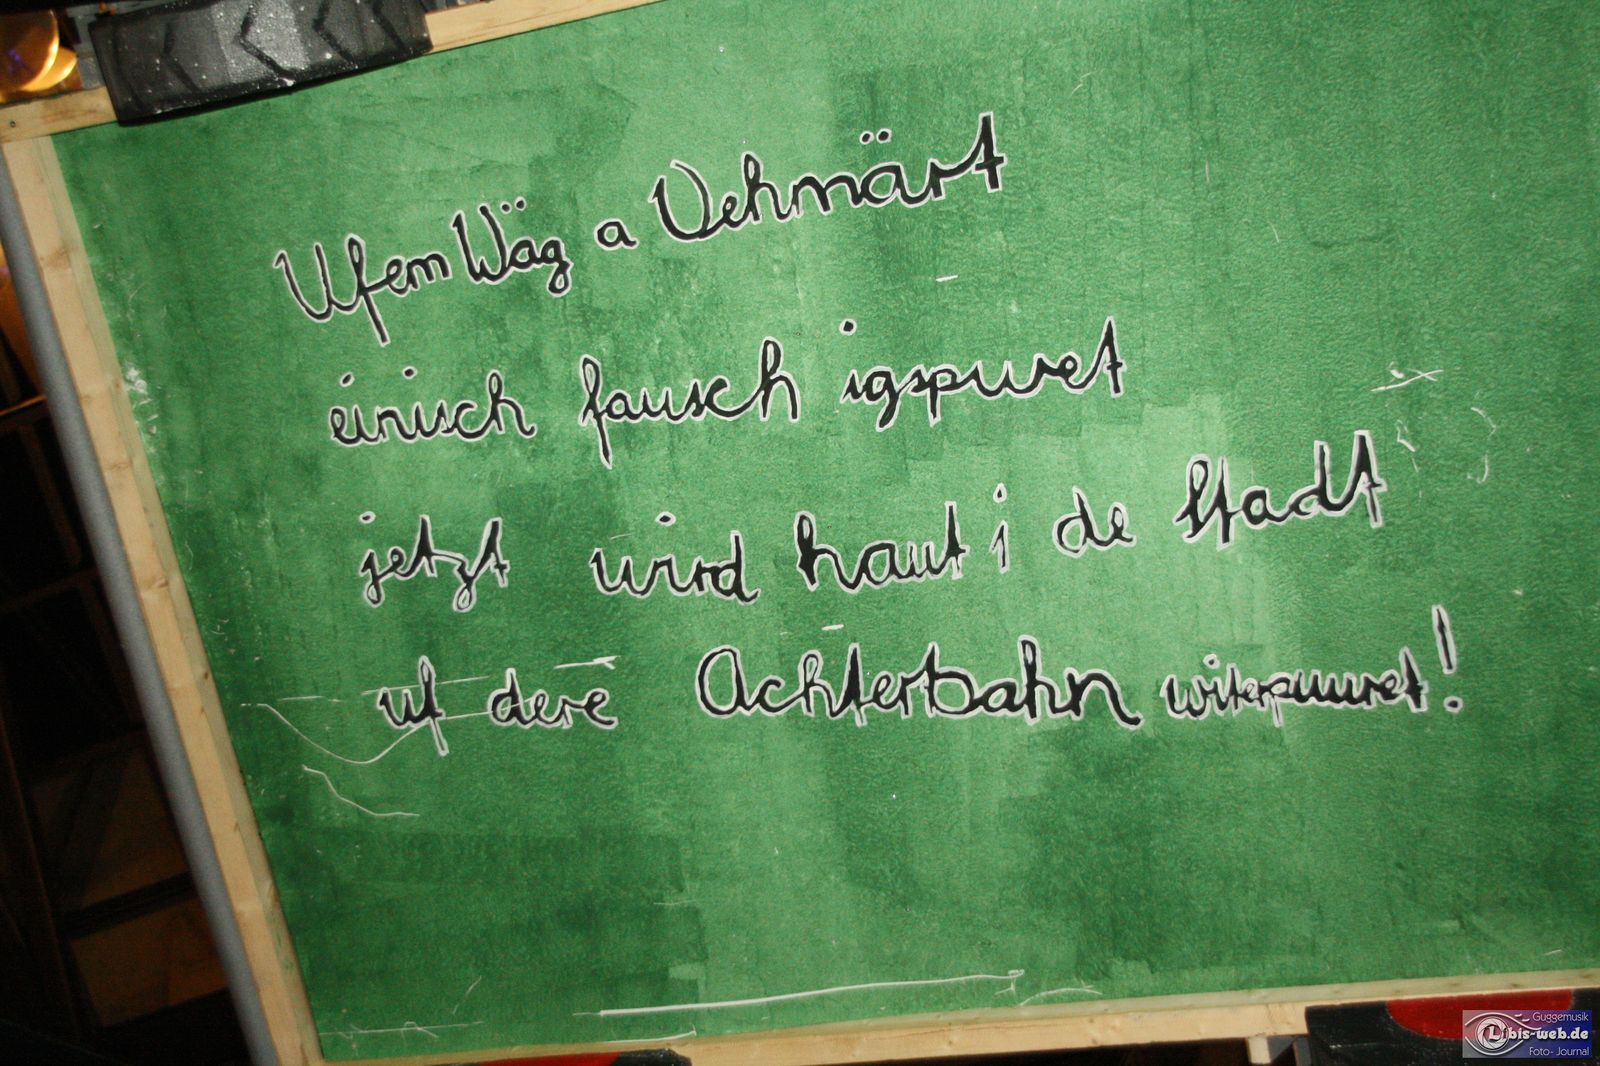 Ufem Wäg a Vehmärt
einisch fausch igspuret
jetzt wird haut i de Stadt
uf dere Achterbahn witerpuuret!
Guggemusik
Libis-web.de
Foto-Journal